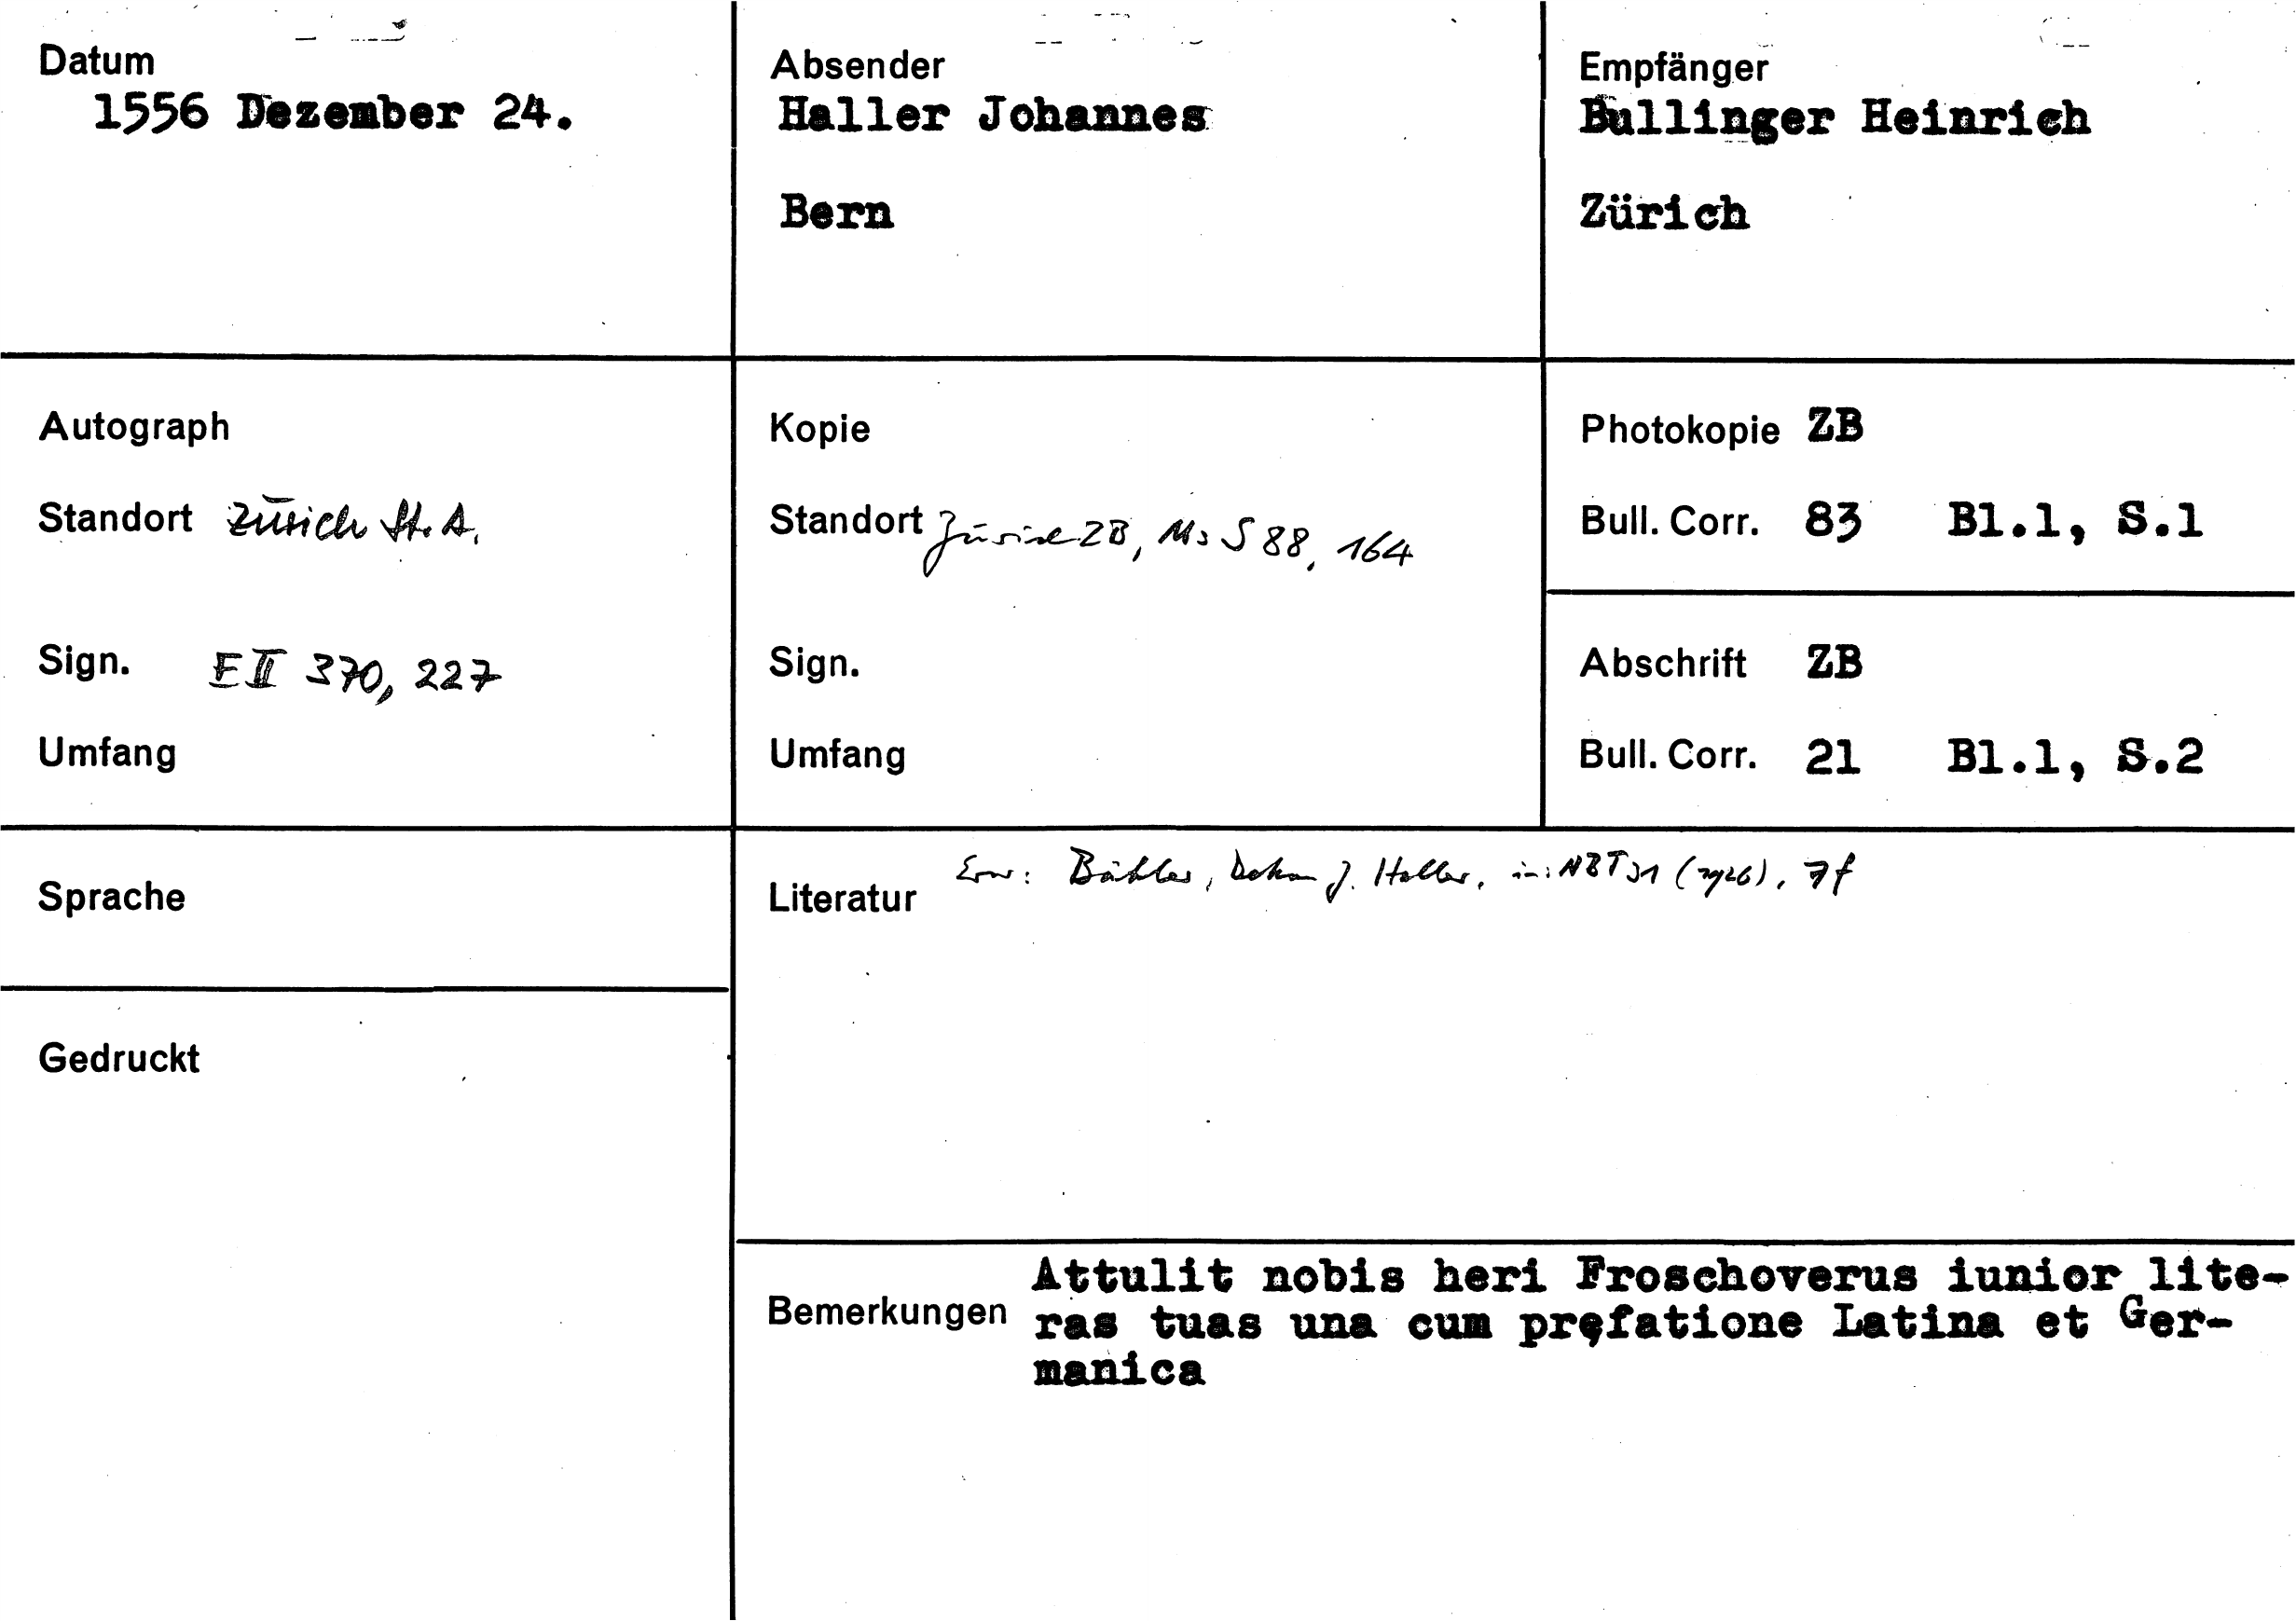 Datum
1556 Dezember 24.
Absender
Haller Johannes
Bern
Empfänger
Bullinger Heinrich
Zürich
Autograph
Standort Zürich St. A.
Sign. E II 370, 227
Umfang
Kopie
Standort Zürich ZB, Ms S 88, 164
Sign.
Umfang
Photokopie ZB
Bull. Corr. 83 Bl.1, S.1
Abschrift ZB
Bull. Corr. 21 Bl.1, S.2
Sprache
Gedruckt
Literatur Erw: Bähler, Dekan J. Haller, in: NBT 31 (1926), 7f
Bemerkungen
Attulit nobis heri Froschoverus iunior lite-
ras tuas una cum pręfatione Latina et Ger-
manica